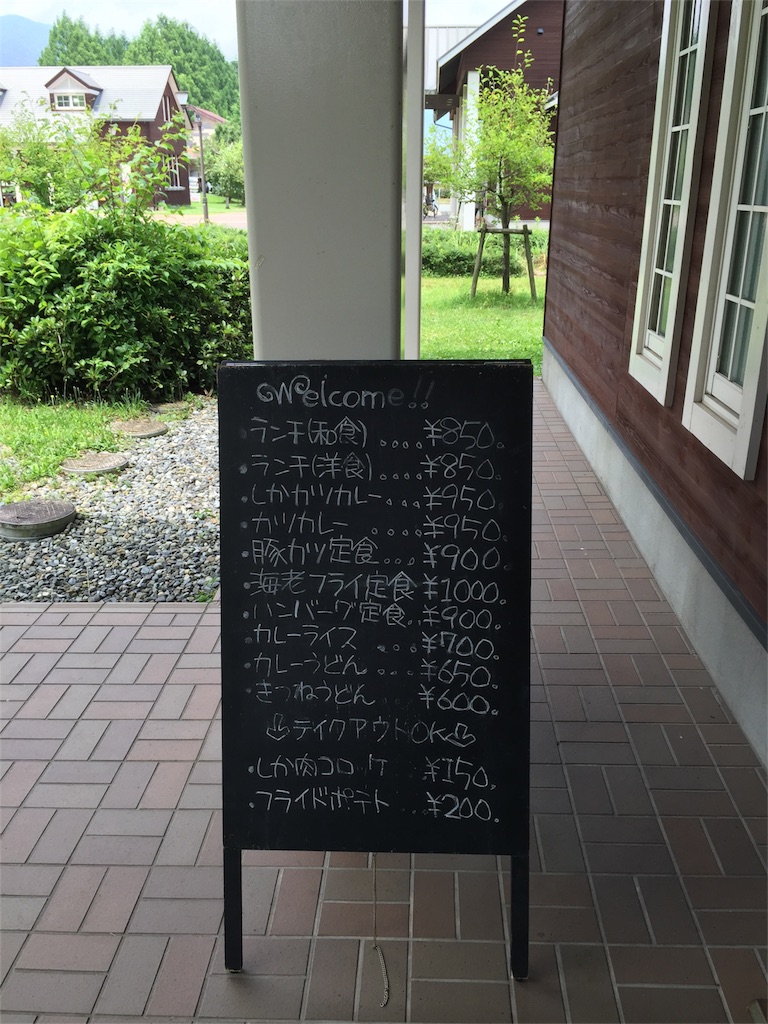 Welcome!!
・ランチ(和食)....¥850.
・ランチ(洋食)....¥850.
・しかカツカレー...¥950.
・カツカレー....¥950.
・豚カツ定食...¥900.
・海老フライ定食 ¥1000.
・ハンバーグ定食..¥900.
・カレーライス ...¥700.
・カレーうどん...¥650.
・きつねうどん ...¥600.
⇩テイクアウトOK⇩
・しか肉コロッケ ..¥150.
・フライドポテト...¥200.